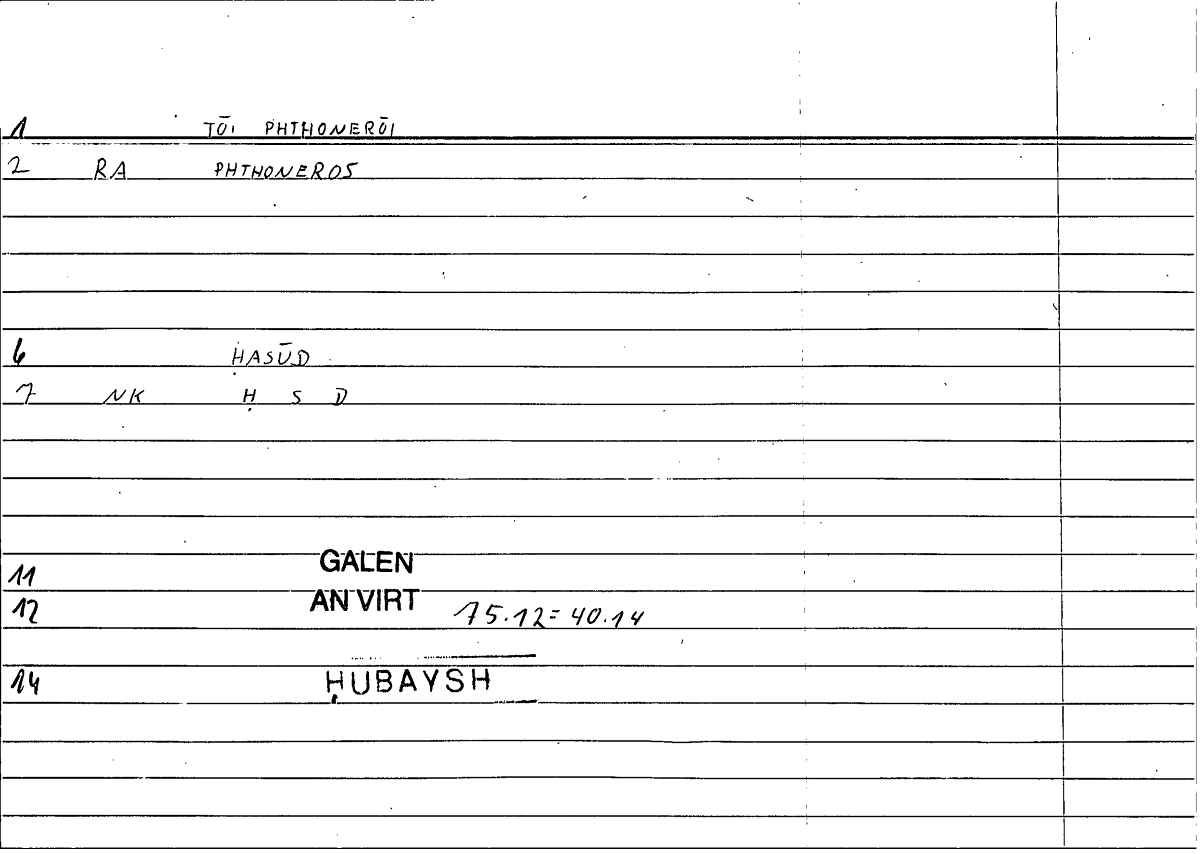 1 TŌI PHTHONERŌI
2 RA PHTHONEROS
6 ḤASŪD
7 NK Ḥ S D
11 GALEN
12 AN VIRT 75.12=40.14
14 ḤUBAYSH